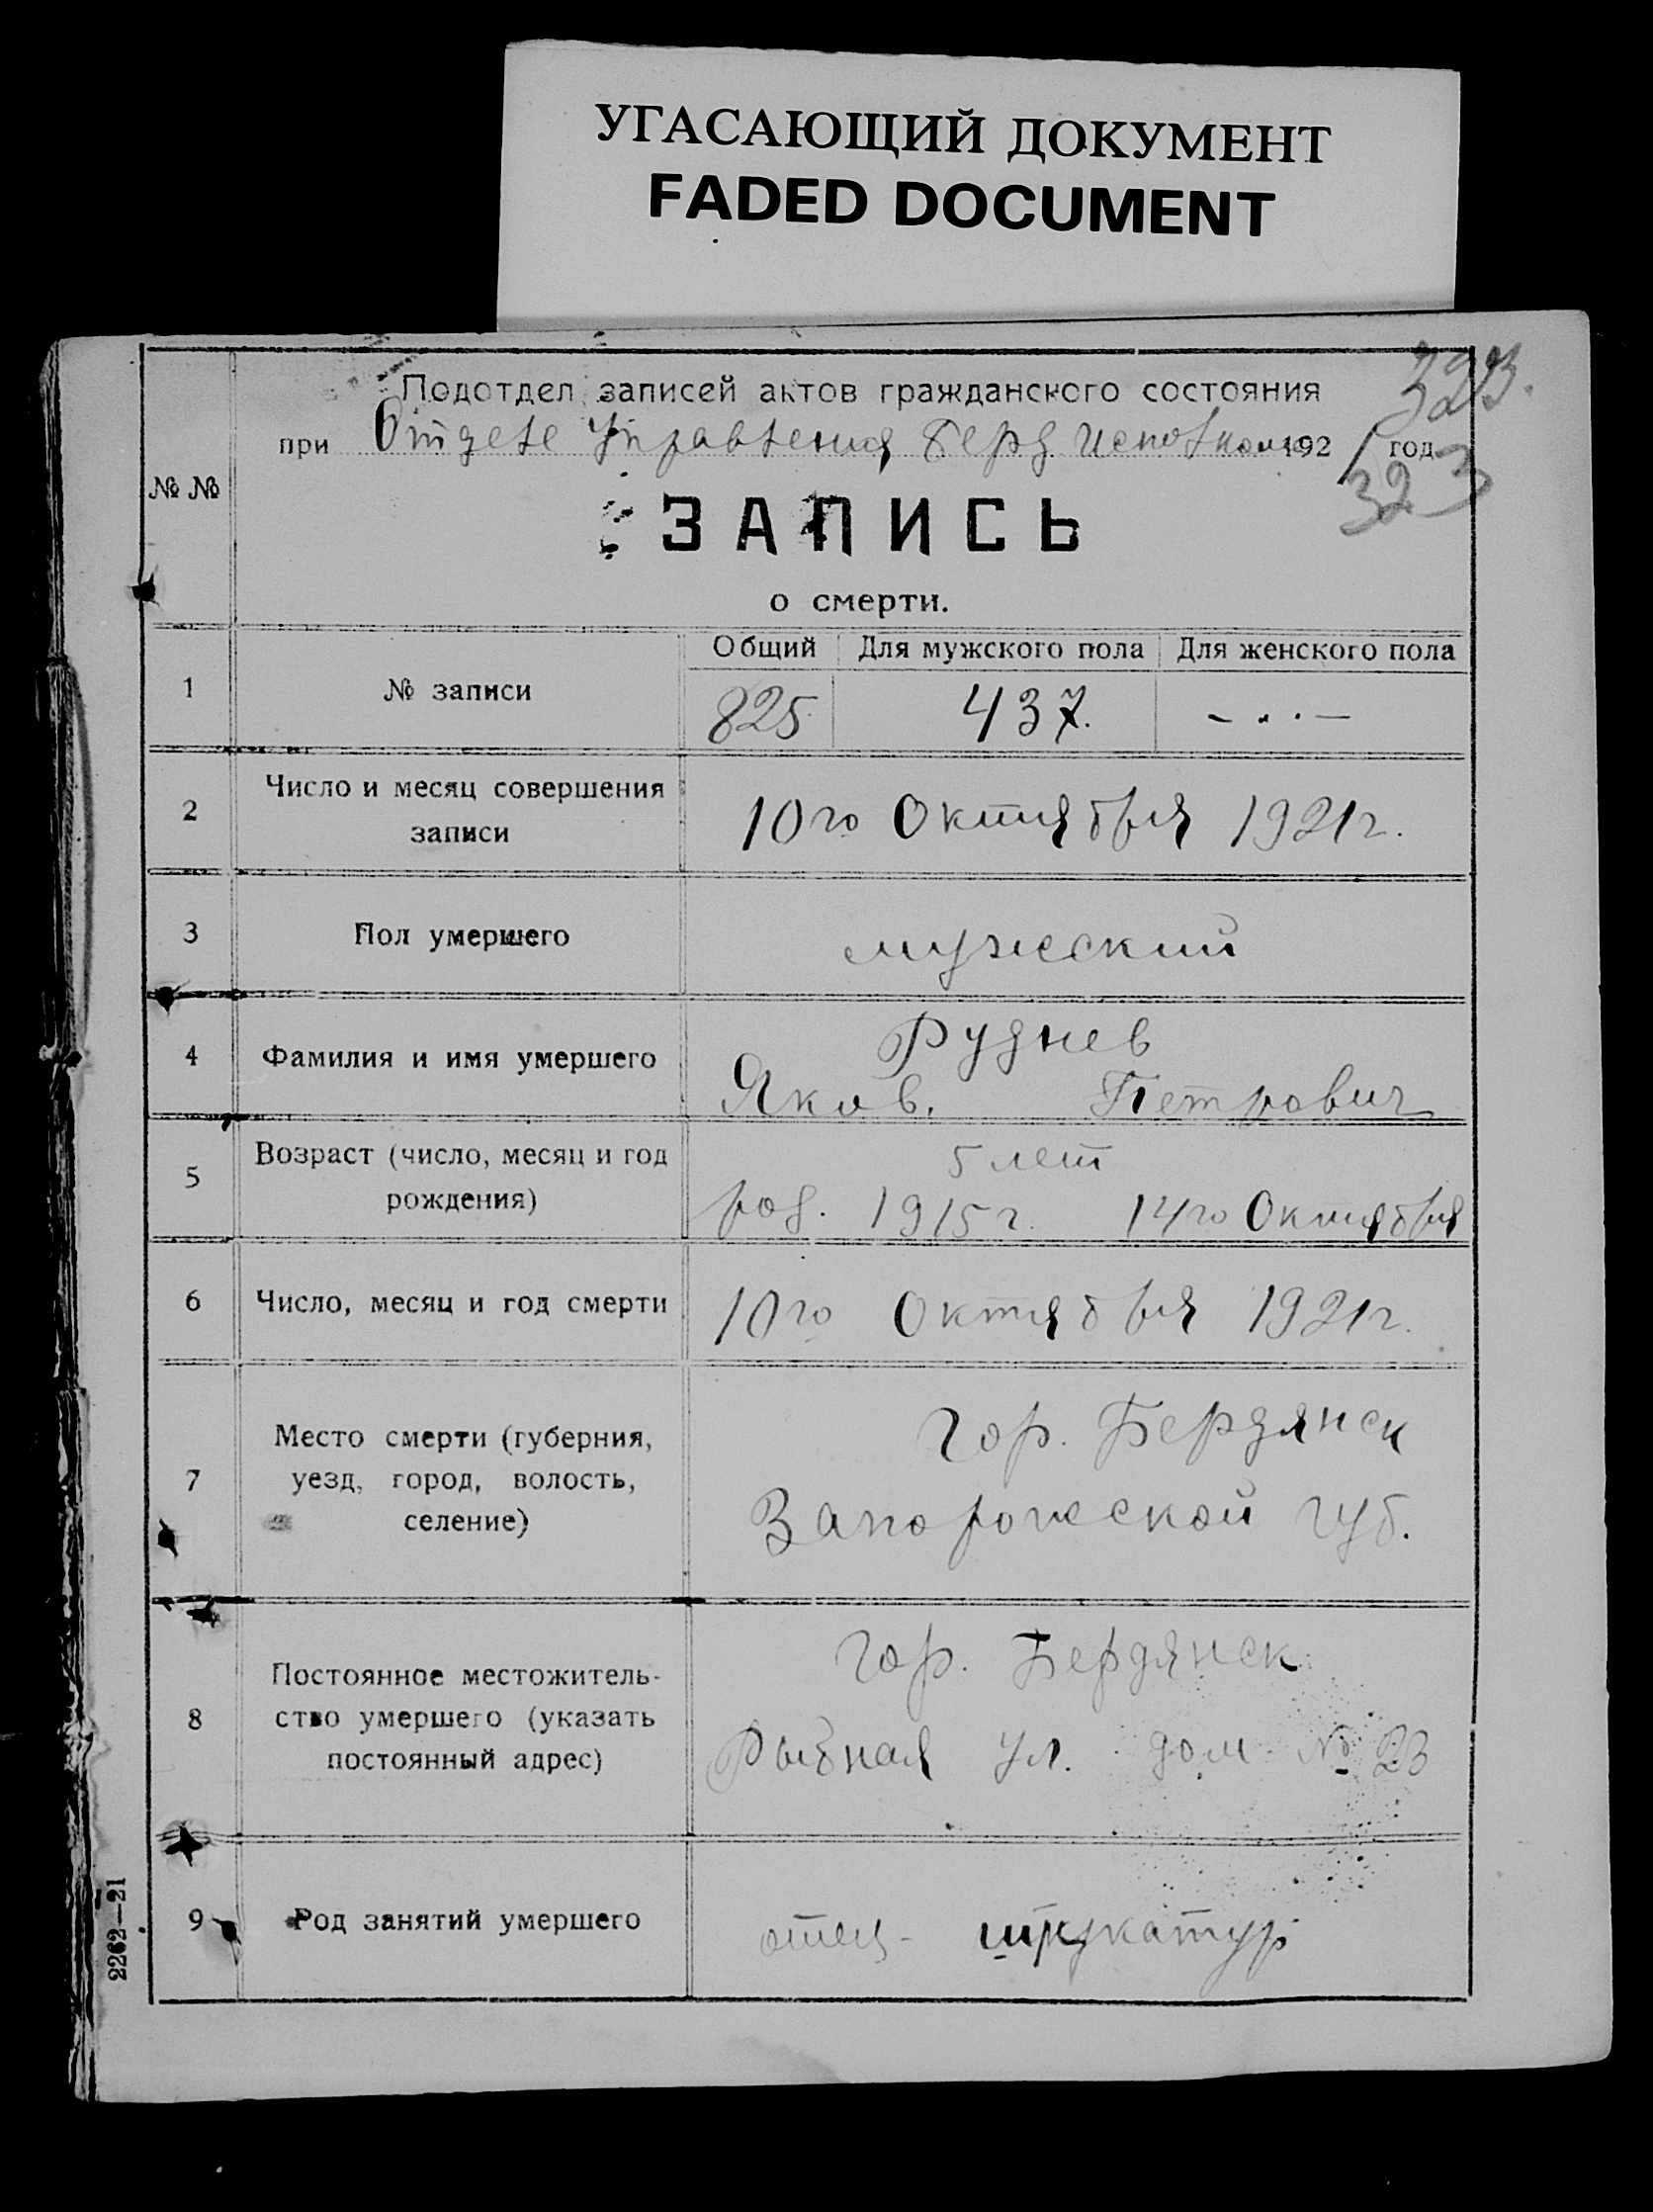 УГАСАЮЩИЙ ДОКУМЕНТ
FADED DOCUMENT
323.
Подотдел записей актов гражданского состояния
при Отделе Управления Берд Исполкома 1921 год
323
№ №
ЗАПИСЬ
о смерти.
Общий Для мужского пола Для женского пола
1 № записи 825 437. - . . . -
2 Число и месяц совершения
записи 10го Октября 1921г.
3 Пол умершего мужеский
4 Фамилия и имя умершего Руднев
Яков. Петрович
5 Возраст (число, месяц и год 5 лет
рождения) род. 1915г. 14го Октября
6 Число, месяц и год смерти 10го Октября 1921г.
7 Место смерти (губерния, гор. Бердянск
уезд, город, волость,
селение) Запорожеской губ.
8 Постоянное местожитель- гор. Бердянск
ство умершего (указать
постоянный адрес) Рыбная ул. дом № 23
9 Род занятий умершего отец - штукатур
2262—21